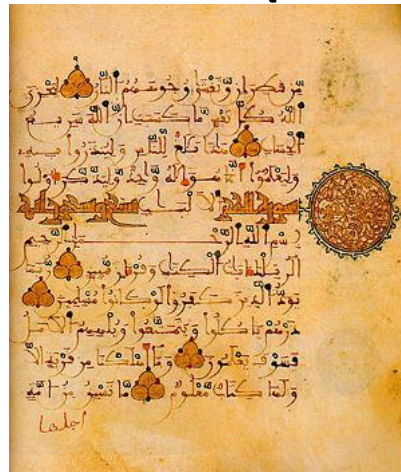 مِّن قَطِرَانٍ وَتَغْشَىٰ وُجُوهَهُمُ النَّارُ لِيَجْزِيَ
اللَّهُ كُلَّ نَفْسٍ مَّا كَسَبَتْ إِنَّ اللَّهَ سَرِيعُ
الْحِسَابِ هَٰذَا بَلَٰغٌ لِّلنَّاسِ وَلِيُنذَرُوا بِهِ
وَلِيَعْلَمُوا أَنَّمَا هُوَ إِلَٰهٌ وَٰحِدٌ وَلِيَذَّكَّرَ أُولُوا
سورة الحجر الْأَلْبَٰبِ
بِسْمِ اللَّهِ الرَّحْمَٰنِ الرَّحِيمِ
الر تِلْكَ ءَايَٰتُ الْكِتَٰبِ وَقُرْءَانٍ مُّبِينٍ رُّبَمَا
يَوَدُّ الَّذِينَ كَفَرُوا لَوْ كَانُوا مُسْلِمِينَ
ذَرْهُمْ يَأْكُلُوا وَيَتَمَتَّعُوا وَيُلْهِهِمُ الْأَمَلُ
فَسَوْفَ يَعْلَمُونَ وَمَا أَهْلَكْنَا مِن قَرْيَةٍ إِلَّا
وَلَهَا كِتَابٌ مَّعْلُومٌ مَّا تَسْبِقُ مِنْ أُمَّةٍ
اجلها